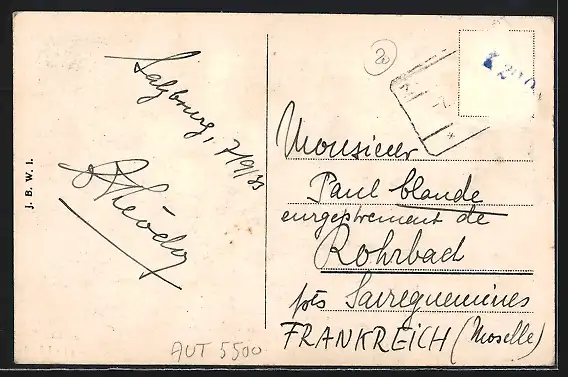 Salzburg, 7/9/33
J. B. W. I.
Monsieur
Paul
de
Rohrbach
près Sarreguemines
FRANKREICH (Moselle)
AUT 5500